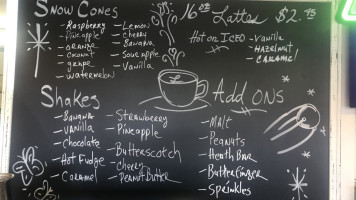 Snow Cones
- Raspberry
- Pineapple
- orange
- Coconut
- grape
- watermelon
- Lemon
- Cherry
- Banana
- Sour apple
- Vanilla
16 oz Lattes $2.75
Hot or ICED
- Vanilla
- HAZelnut
- CARAMEL
Shakes
- BANANA
- Vanilla
- Chocolate
- Hot Fudge
- Caramel
- Strawberry
- Pineapple
- Butterscotch
- Cherry
- PeanutButter
Add ONS
- Malt
- Peanuts
- Heath BAR
- Butterfinger
- Sprinkles